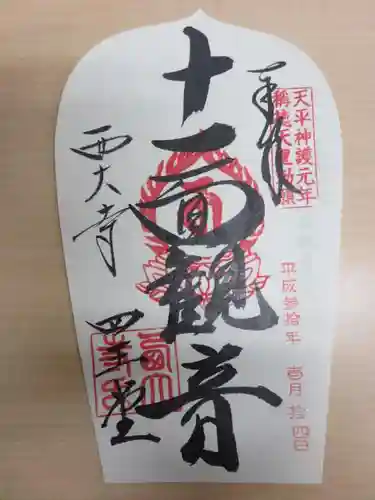 奉拝
天平神護元年
稱徳天皇勅願
十一面観音
平成参拾年 壱月 拾四日
西大寺
四王堂